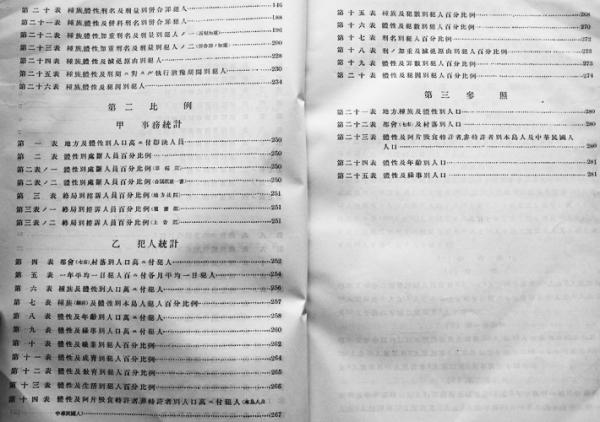 第二十表 種族體性刑名及刑量別倂合罪犯人 146
第二十一表 種族體性及併科刑名別倂合罪犯人 188
第二十二表 種族體性加重刑名及刑量別犯人ノ一 196
第二十三表 種族體性加重刑名及刑量別犯人ノ二 200
第二十四表 種族體性及減免原由別犯人 228
第二十五表 種族體性及刑期ニ對スル執行猶豫期間別犯人 230
第二十六表 種族體性及犯罰別犯人 234
第二 比例
甲 事務統計
第一表 地方及體性別人口萬ニ付卽決人員 250
第二表 體性別處斷人員百分比例 250
第二表ノ一 體性別處斷人員百分比例 250
第二表ノ二 體性別處斷人員百分比例 250
第三表 終局別被訴人員百分比例(地方法院) 251
第三表ノ一 終局別被訴人員百分比例 251
第三表ノ二 終局別被訴人員百分比例(上告部) 251
乙 犯人統計
第四表 都會(七市)村落別人口萬ニ付犯人 252
第五表 一年平均一日犯人百ニ付各月平均一日犯人 254
第六表 種族體性別人口萬ニ付犯人 256
第七表 種族及體性別本島人犯人百分比例 257
第八表 體性及年齡別人口萬ニ付犯人 258
第九表 體性及緣事別人口萬ニ付犯人 260
第十表 體性及職業別犯人百分比例 262
第十一表 體性及成育別犯人百分比例 264
第十二表 體性及敎育別犯人百分比例 265
第十三表 體性及生活別犯人百分比例 266
第十四表 體性及阿片吸食特許者,非特許者別人口萬ニ付犯人(本島人及
中華民國人) 267
第十五表 體性及犯數別犯人百分比例 268
第十六表 體性及犯數別犯人百分比例 270
第十七表 刑名別犯人百分比例 272
第十八表 刑ノ加重及減免原由別犯人百分比例 273
第十九表 體性及罪數別犯人百分比例 273
第二十表 體性及犯罰別犯人百分比例 274
第三 參照
第二十一表 地方,種族及體性別人口 280
第二十二表 都會(七市)及村落別人口 280
第二十三表 體性及阿片吸食特許者,非特許者別本島人及中華民國人
人口 280
第二十四表 體性及年齡別人口 281
第二十五表 體性及緣事別人口 281